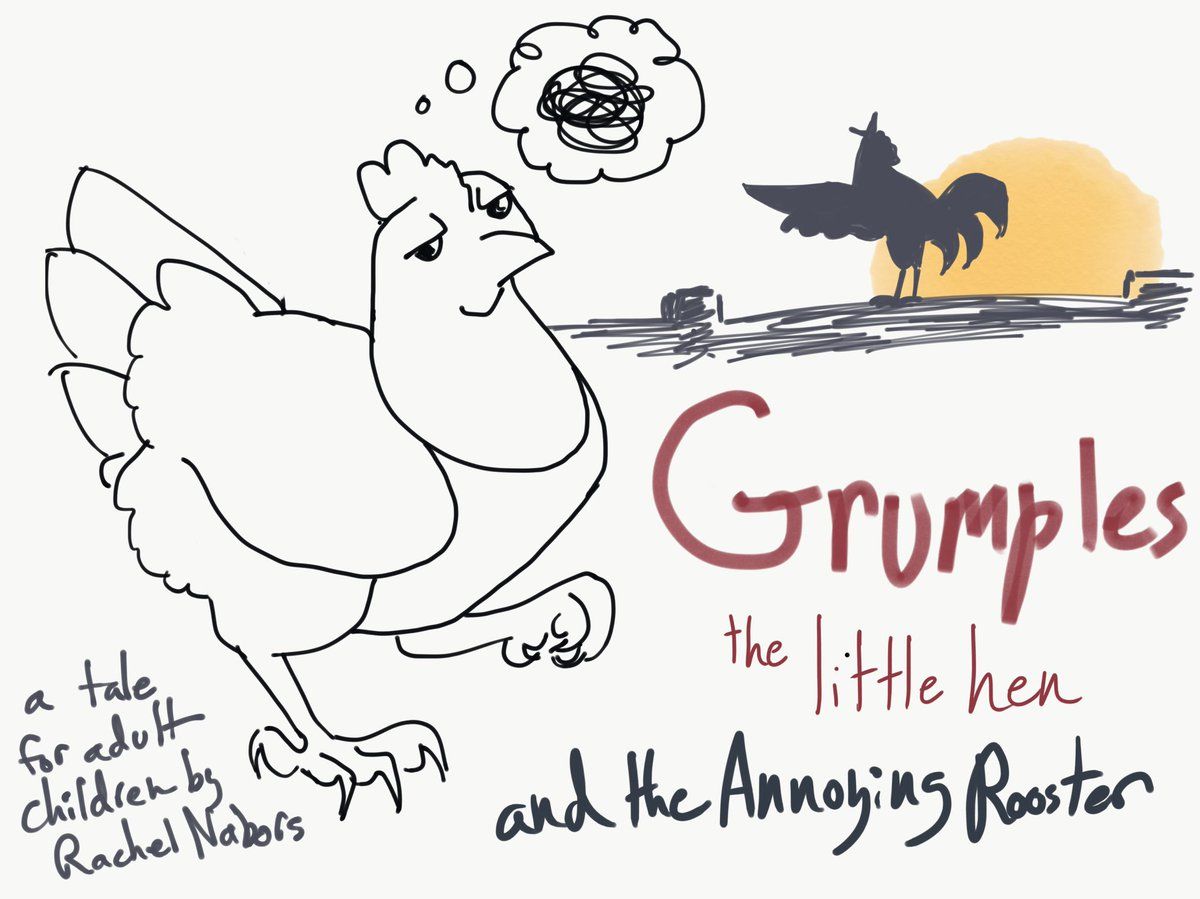 Grumples
the little hen
and the Annoying Rooster
a tale
for adult
children by
Rachel Nabors